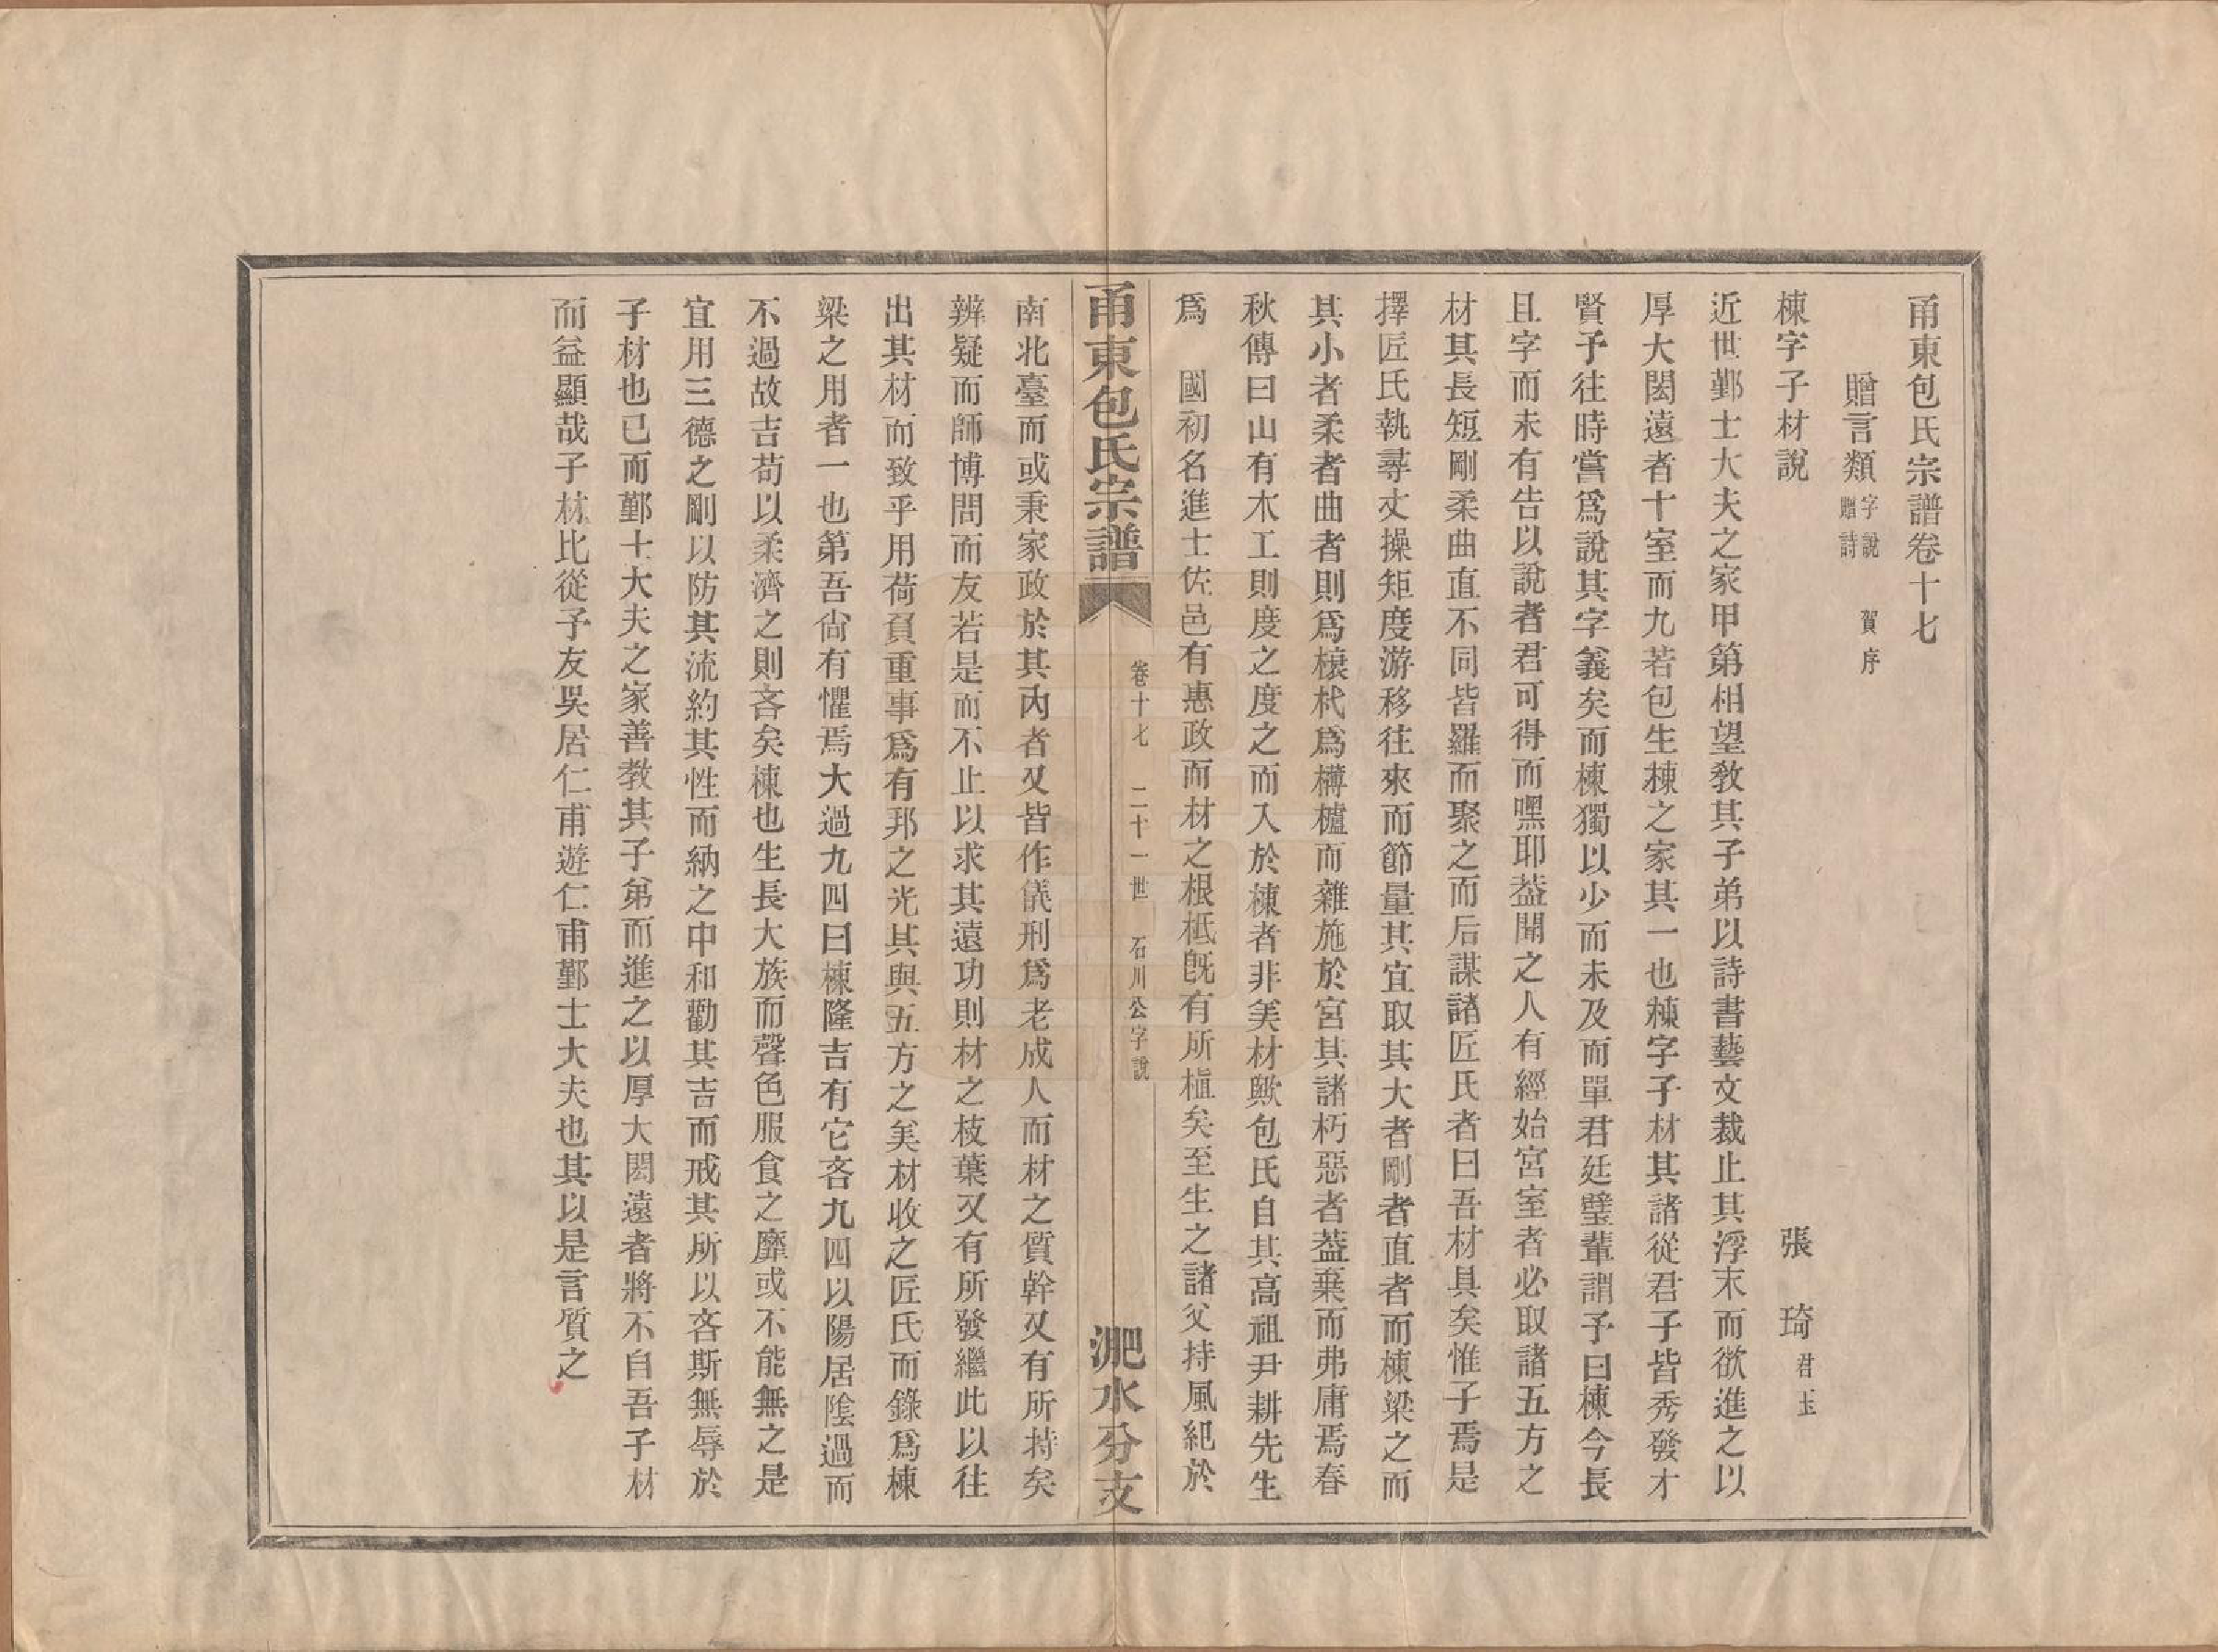 甬東包氏宗譜卷十七
贈言類字說 賀序贈詩
棟字子材說 張 琦君玉
近世鄞士大夫之家甲第相望教其子弟以詩書藝文裁止其浮末而欲進之以
厚大閎遠者十室而九若包生棟之家其一也棟字子材其諸從君子皆秀發才
賢予往時嘗爲說其字義矣而棟獨以少而未及而單君廷璧輩謂予曰棟今長
且字而未有告以說者君可得而嘿耶葢聞之人有經始宮室者必取諸五方之
材其長短剛柔曲直不同皆羅而聚之而后謀諸匠氏者曰吾材具矣惟子焉是
擇匠氏執尋丈操矩度游移往來而節量其宜取其大者剛者直者而棟梁之而
其小者柔者曲者則爲榱杙爲欂櫨而雜施於宮其諸朽惡者葢棄而弗庸焉春
秋傳曰山有木工則度之度之而入於棟者非美材歟包氏自其高祖尹耕先生
爲 國初名進士佐邑有惠政而材之根柢旣有所植矣至生之諸父持風紀於
甬東包氏宗譜 卷十七 二十一世 石川公字說 淝水分支
南北臺而或秉家政於其內者又皆作儀刑爲老成人而材之質幹又有所持矣
辨疑而師博問而友若是而不止以求其遠功則材之枝葉又有所發繼此以往
出其材而致乎用荷負重事爲有邦之光其與五方之美材收之匠氏而錄爲棟
梁之用者一也第吾尙有懼焉大過九四曰棟隆吉有它吝九四以陽居陰過而
不過故吉苟以柔濟之則吝矣棟也生長大族而聲色服食之靡或不能無之是
宜用三德之剛以防其流約其性而納之中和勸其吉而戒其所以吝斯無辱於
子材也已而鄞士大夫之家善教其子弟而進之以厚大閎遠者將不自吾子材
而益顯哉子材比從子友吳居仁甫遊仁甫鄞士大夫也其以是言質之